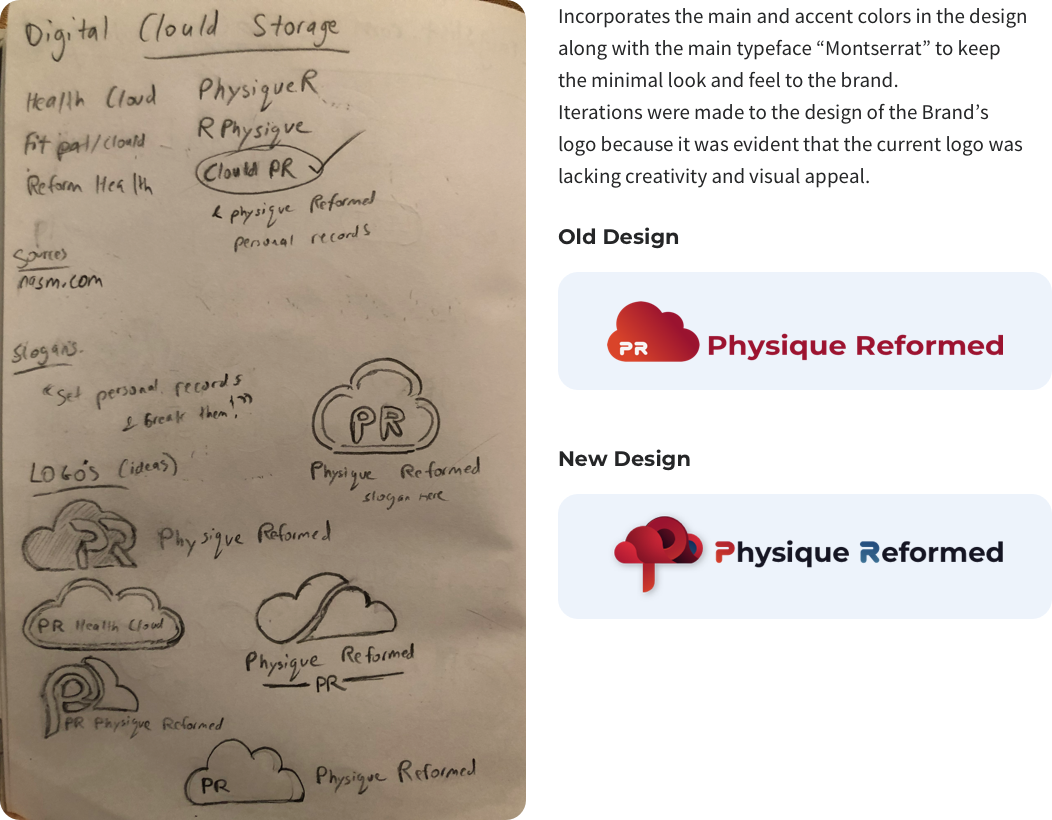 Digital Clould Storage
Health Cloud
Fit pal/Clould
Reform Health
PhysiqueR
R Physique
Clould PR
& physique Reformed
personal records
Sources
nasm.com
Slogans.
"Set personal records
& break them!"
LOGO's (ideas)
PR
Physique Reformed
slogan Here
PR
Physique Reformed
PR Health Cloud
Physique Reformed
PR
PR Physique Reformed
PR
Physique Reformed
Incorporates the main and accent colors in the design
along with the main typeface “Montserrat” to keep
the minimal look and feel to the brand.
Iterations were made to the design of the Brand’s
logo because it was evident that the current logo was
lacking creativity and visual appeal.
Old Design
PR Physique Reformed
New Design
Physique Reformed